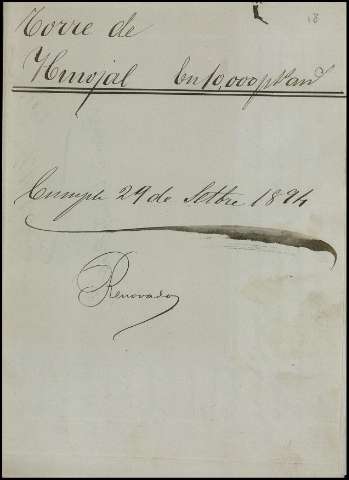 18
Torre de
Hinojal En 10,000 pts an
Cumple 29 de Setbre 1894
Renovado